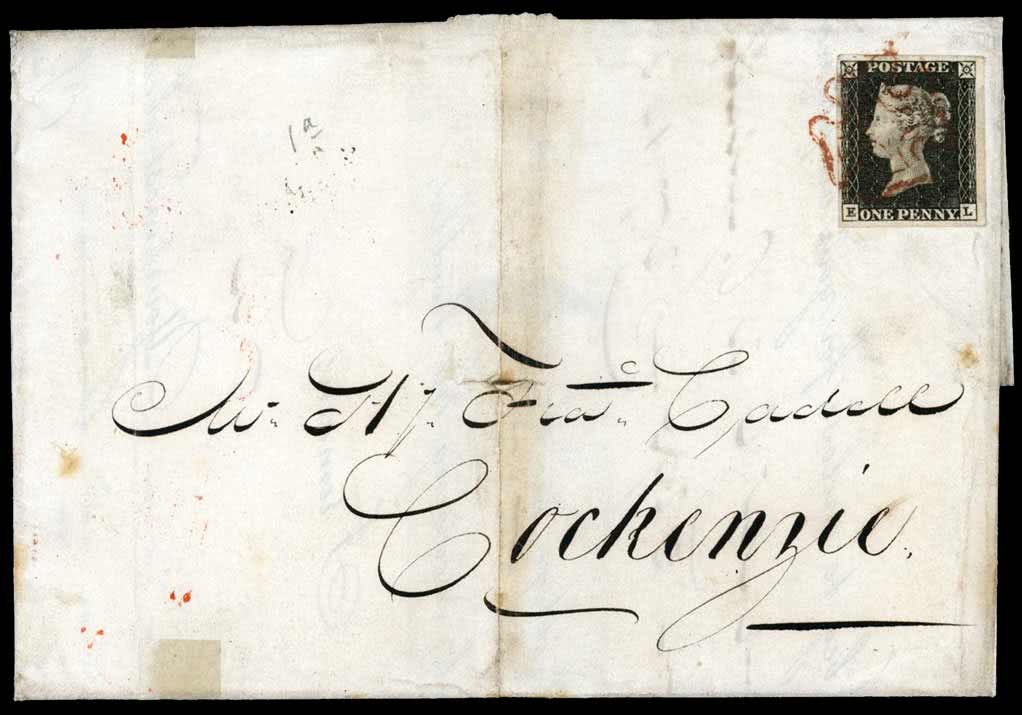 POSTAGE
E ONE PENNY. L
1a
Mr. H. J. Fras. Cadell
Cockenzie.